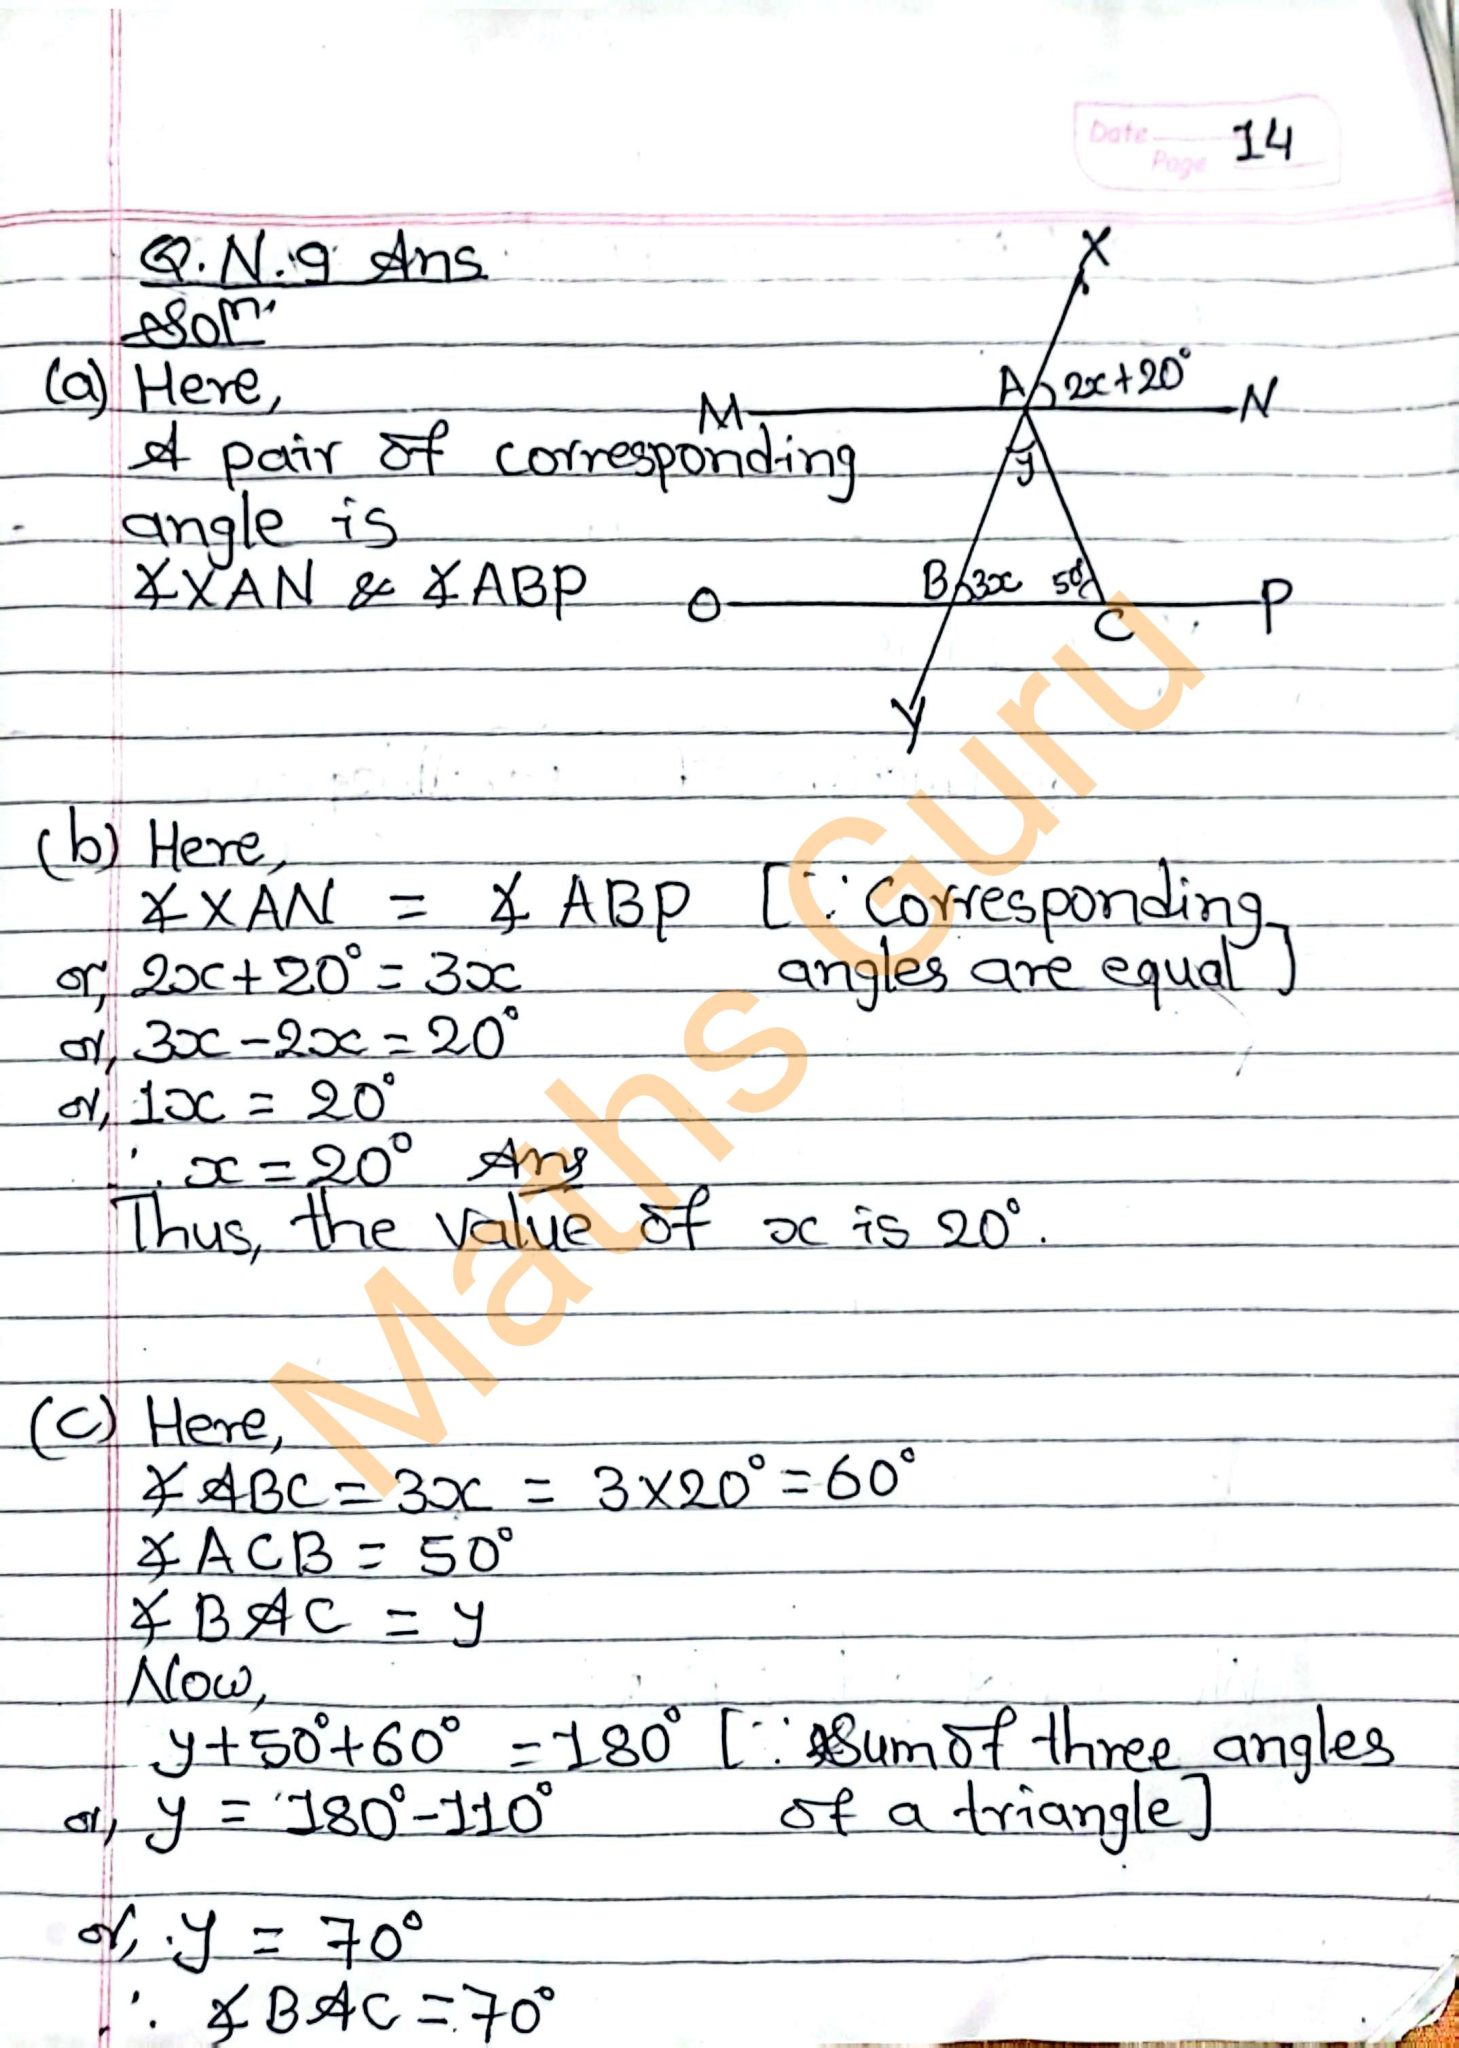 Date
Page 14
Q.N.9 Ans
Solⁿ.
(a) Here,
A pair of corresponding
angle is
∡XAN & ∡ABP
X
A 2x+20°
M N
y
B 3x 50° 
O C P
Y
(b) Here,
∡XAN = ∡ABP [∵ Corresponding
angles are equal]
or, 2x+20° = 3x
or, 3x-2x = 20°
or, 1x = 20°
∴ x = 20° Ans
Thus, the value of x is 20°.
(c) Here,
∡ABC = 3x = 3×20° = 60°
∡ACB = 50°
∡BAC = y
Now,
y+50°+60° = 180° [∵ Sum of three angles
of a triangle]
or, y = 180°-110°
or, y = 70°
∴ ∡BAC = 70°
Maths Guru